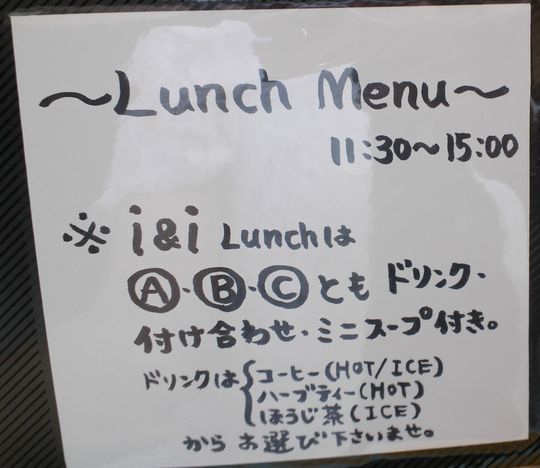 ～Lunch Menu～
11:30～15:00
※ i&i Lunchは
Ⓐ・Ⓑ・Ⓒとも ドリンク・
付け合わせ・ミニスープ付き。
ドリンクは{コーヒー(HOT/ICE)
ハーブティー(HOT)
ほうじ茶(ICE)
から お選び下さいませ。